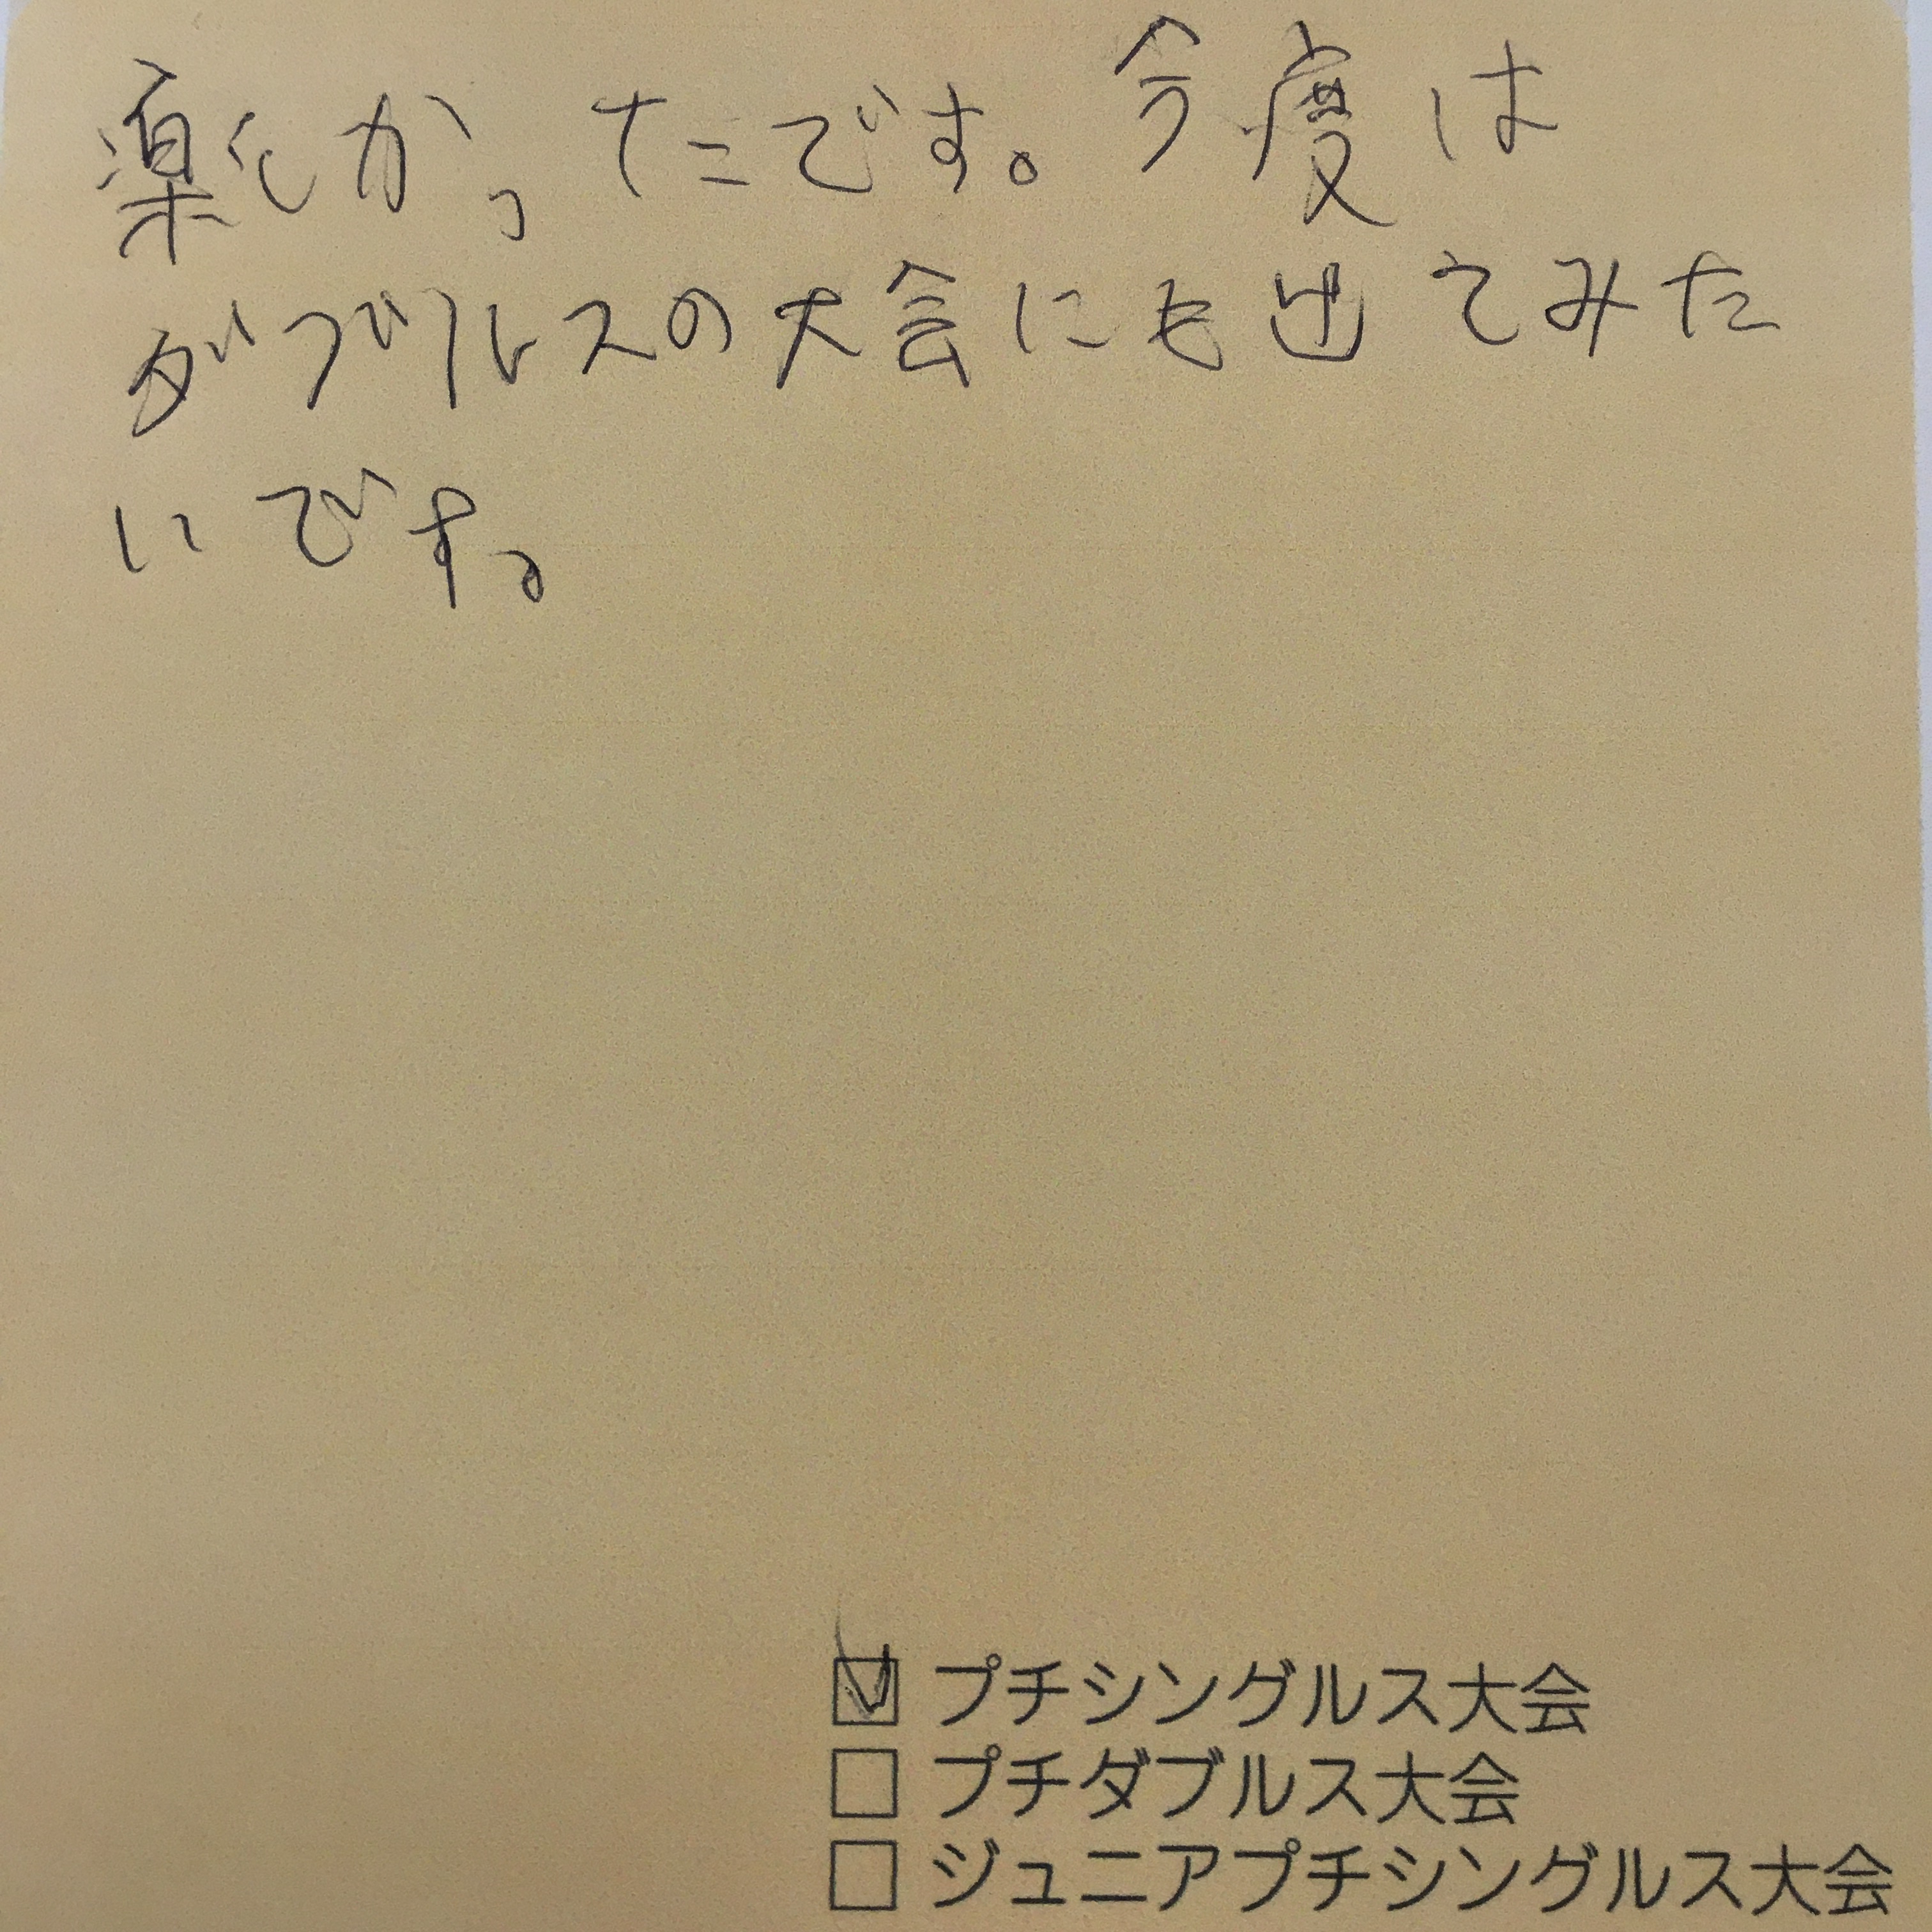 楽しかったです。今度は
ダブルスの大会にも出てみた
いです。
☑ プチシングルス大会
□ プチダブルス大会
□ ジュニアプチシングルス大会